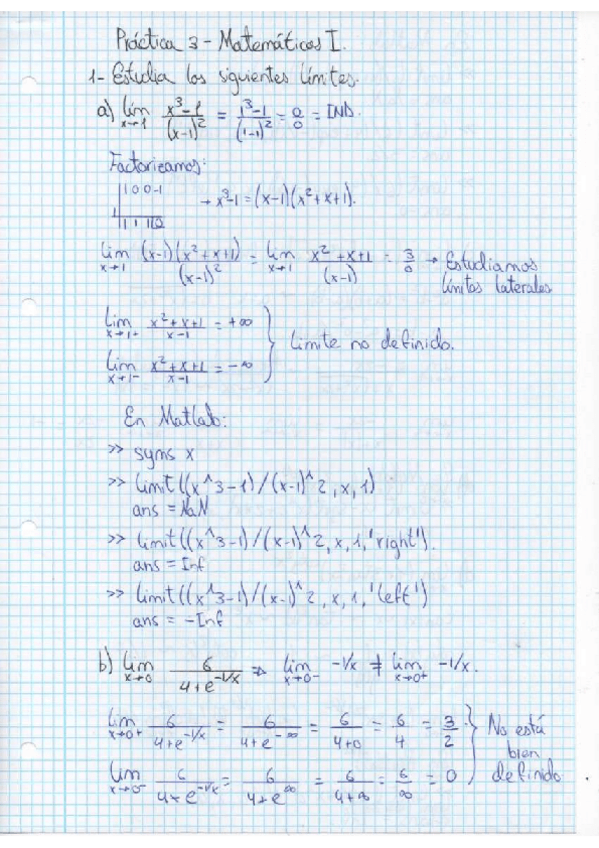 Práctica 3 - Matemáticas I.
1- Estudia los siguientes límites.
a) lim x→1 x³-1/(x-1)² = 1³-1/(1-1)² = 0/0 = IND.
Factorizamos:
1 0 0 -1 → x³-1 = (x-1)(x²+x+1).
1
1 1 1 0
lim x→1 (x-1)(x²+x+1)/(x-1)² = lim x→1 x²+x+1/(x-1) = 3/0 → Estudiamos
límites laterales
lim x→1+ x²+x+1/x-1 = +∞
lim x→1- x²+x+1/x-1 = -∞ } Limite no definido.
En Matlab:
>> syms x
>> limit((x^3-1)/(x-1)^2,x,1)
ans = NaN
>> limit((x^3-1)/(x-1)^2,x,1,'right').
ans = Inf
>> limit((x^3-1)/(x-1)^2,x,1,'left')
ans = -Inf
b) lim x→0 6/4+e^-1/x ⇒ lim x→0- -1/x ≠ lim x→0+ -1/x.
lim x→0+ 6/4+e^-1/x = 6/4+e^-∞ = 6/4+0 = 6/4 = 3/2 } No está
bien
lim x→0- 6/4+e^-1/x = 6/4+e^∞ = 6/4+∞ = 6/∞ = 0 definido